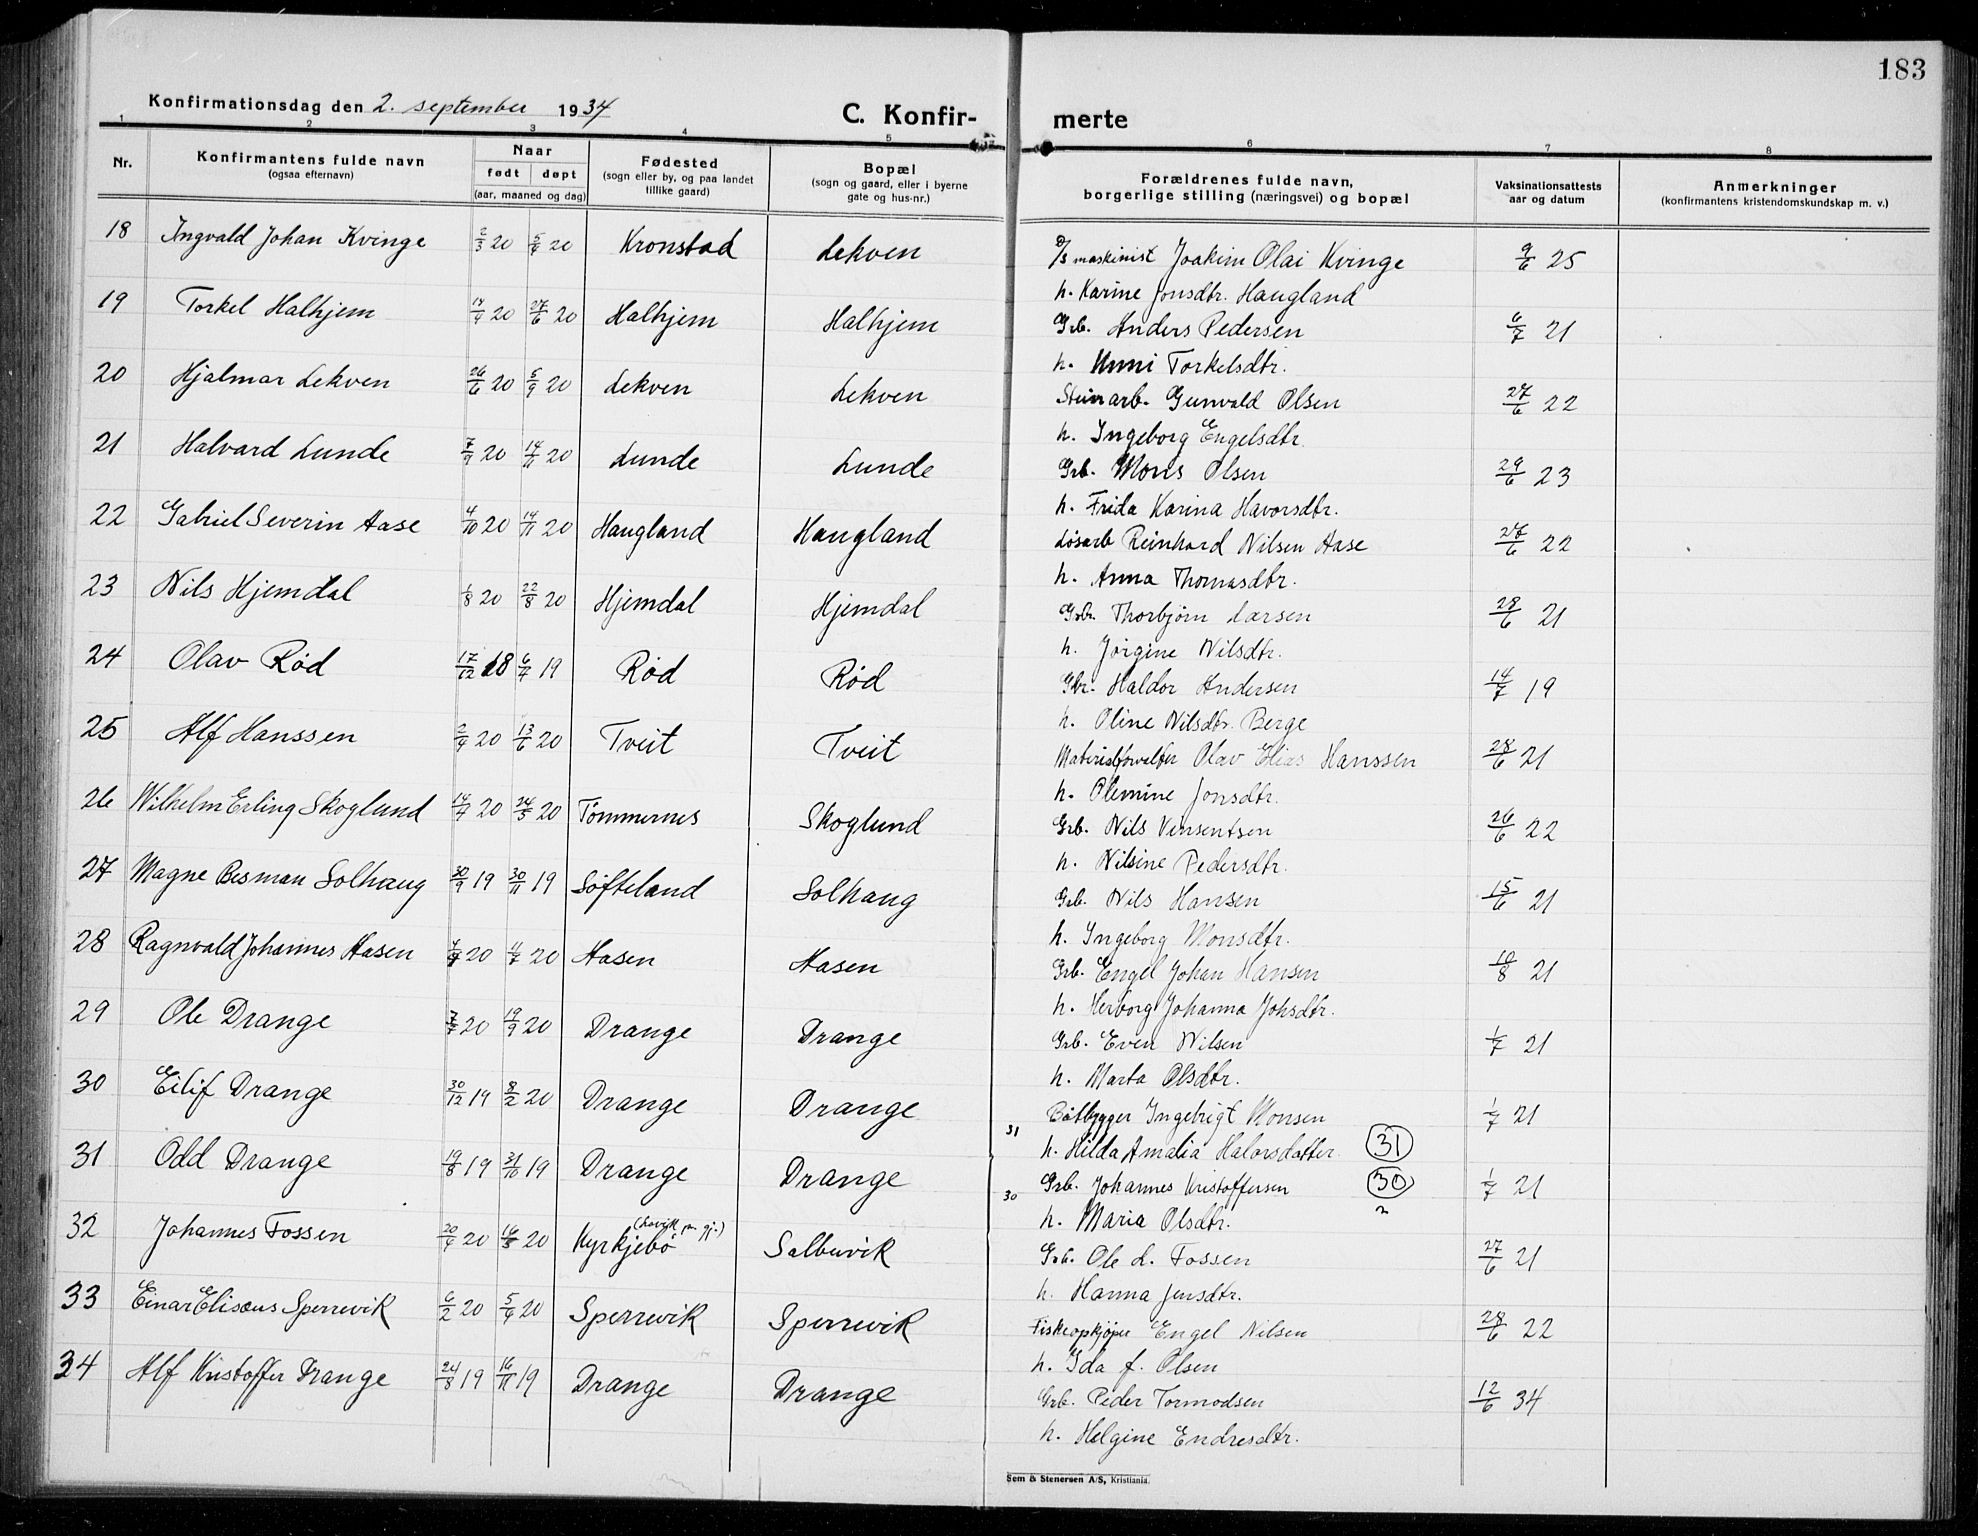 183
Konfirmationsdag den 2. september 1934
C. Konfir-
merte
1 2 3 4 5 6 7 8
Nr.
Konfirmantens fulde navn
(ogsaa efternavn)
Naar
født døpt
(aar, maaned og dag)
Fødested
(sogn eller by, og paa landet
tillike gaard)
Bopæl
(sogn og gaard, eller i byerne
gate og hus-nr.)
Forældrenes fulde navn,
borgerlige stilling (næringsvei) og bopæl
Vaksinationsattests
aar og datum
Anmerkninger
(konfirmantens kristendomskundskap m. v.)
18 Ingvald Johan Kvinge 2/3 20 5/4 20 Kronstad Lekven D/S maskinist Joakim Olai Kvinge 9/6 25
h. Karine Jonsdtr. Haugland
19 Torkel Halhjem 14/4 20 27/6 20 Halhjem Halhjem Grb. Anders Pedersen 6/7 21
h. Unni Torkelsdtr.
20 Hjalmar Lekven 26/6 20 5/9 20 Lekven Lekven Steinarb. Gunvald Olsen 27/6 22
h. Ingeborg Engelsdtr.
21 Halvard Lunde 7/9 20 14/11 20 Lunde Lunde Grb. Mons Olsen 29/6 23
h. Frida Karina Havorsdtr.
22 Gabriel Severin Aase 4/10 20 14/11 20 Haugland Haugland Løsarb Reinhard Nilsen Aase 27/6 22
h. Anna Thomasdtr.
23 Nils Hjemdal 1/8 20 22/8 20 Hjemdal Hjemdal Grbr. Thorbjørn Larsen 28/6 21
h. Jørgine Nilsdtr.
24 Olav Rød 17/12 18 6/4 19 Rød Rød Gbr. Haldor Andersen 14/7 19
h. Oline Nilsdtr. Berge
25 Alf Hanssen 2/4 20 13/6 20 Tveit Tveit Materialforvalter Olav Elias Hanssen 28/6 21
h. Olemine Jonsdtr.
26 Wilhelm Erling Skoglund 14/4 20 24/5 20 Tømmernes Skoglund Grb. Nils Vensentsen 26/6 22
h. Nilsine Pedersdtr.
27 Magne Besman Solhaug 30/9 19 30/11 19 Søfteland Solhaug Grb. Nils Hansen 15/6 21
h. Ingeborg Monsdtr.
28 Ragnvald Johannes Aasen 20 4/7 20 Aasen Aasen Grb. Engel Johan Hansen 10/8 21
h. Herborg Johanna Johsdtr.
29 Ole Drange 7/7 20 19/9 20 Drange Drange Grb. Even Nilsen 1/7 21
h. Marta Olsdtr.
30 Eilif Drange 30/12 19 8/2 20 Drange Drange Båtbygger Ingebrigt Monsen 1/7 21
31 h. Hilda Amalia Halvorsdatter 31
31 Odd Drange 19/8 19 31/10 19 Drange Drange 30 Grb. Johannes Kristoffersen 30 1/7 21
h. Maria Olsdtr.
32 Johannes Fossen 20/4 20 16/5 20 Kyrkjebø (Lavik p. gj.) Salbuvik Grb. Ole L. Fossen 27/6 21
h. Hanna Jensdtr.
33 Einar Elisæus Sperrevik 6/2 20 5/4 20 Sperrevik Sperrevik Fiskeopkjøper Engel Nilsen 28/6 22
h. Ida f. Olsen
34 Alf Kristoffer Drange 24/8 19 16/11 19 Drange Drange Grb. Peder Tormodsen 12/6 34
h. Helgine Endresdtr.
Sem & Stenersen A/S, Kristiania.